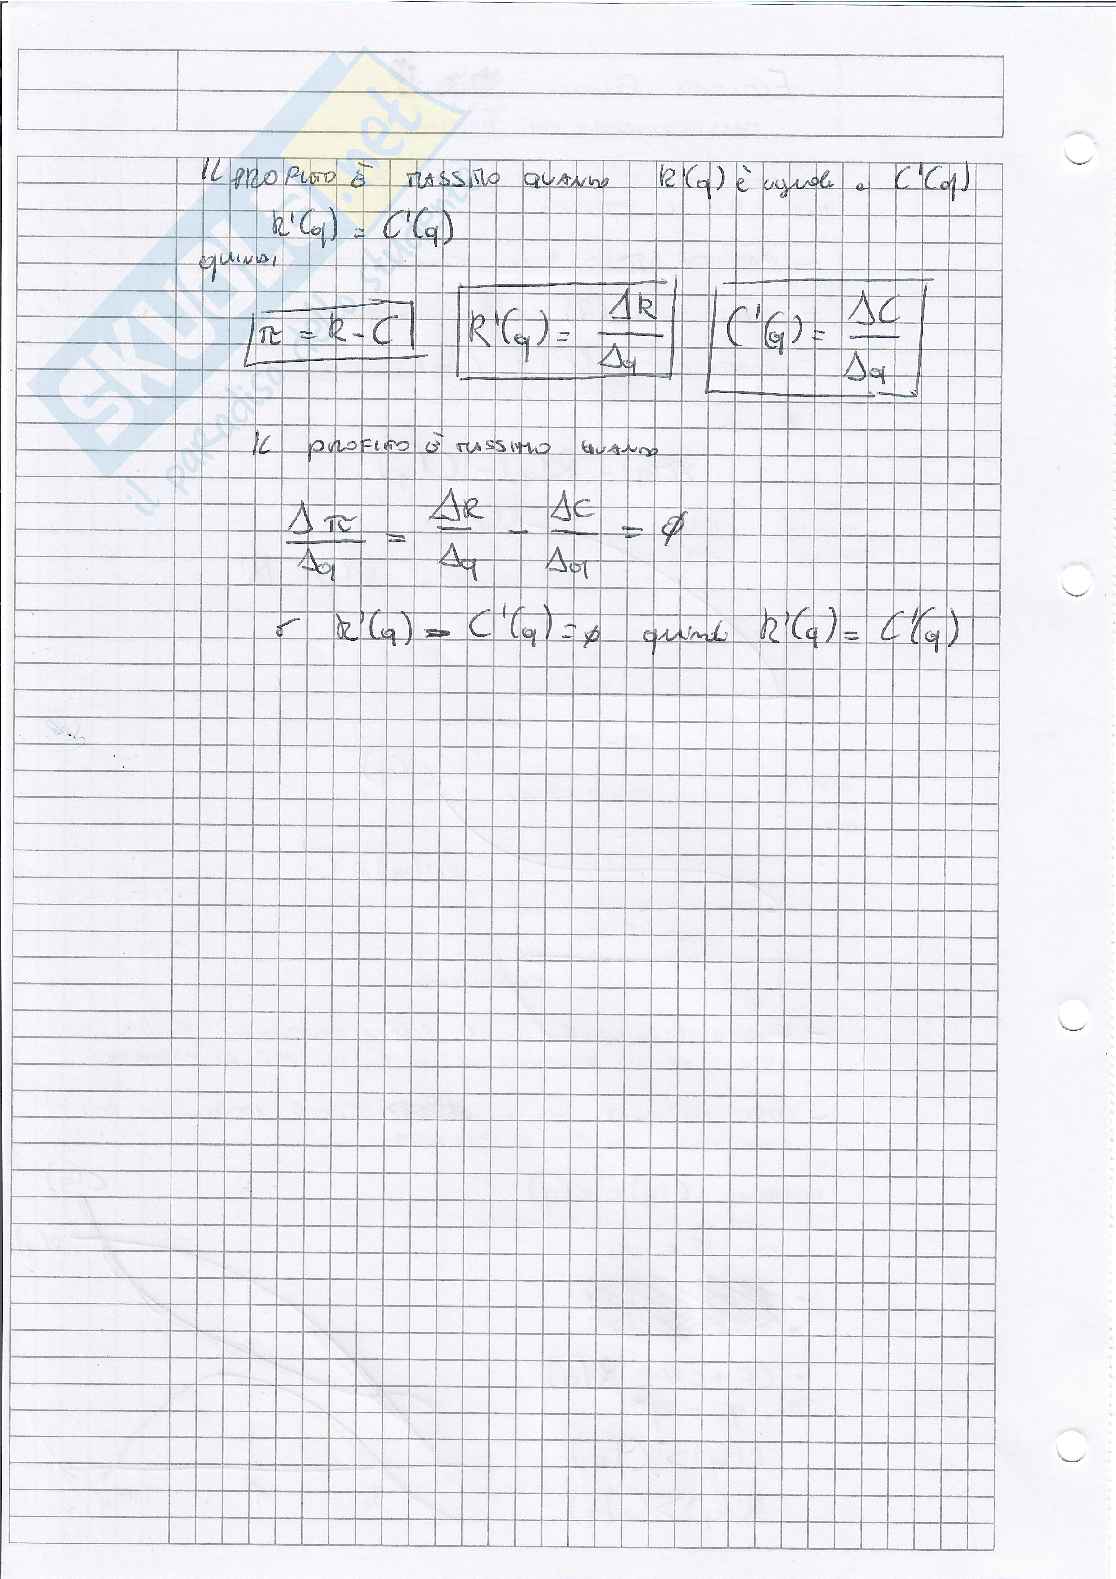 IL PROFITTO È MASSIMO QUANDO R'(q) è uguale a C'(q)
R'(q) = C'(q)
quindi
π = R - C R'(q) = ΔR/Δq C'(q) = ΔC/Δq
IL PROFITTO È MASSIMO QUANDO
Δπ/Δq = ΔR/Δq - ΔC/Δq = ∅
R'(q) - C'(q) = ∅ quindi R'(q) = C'(q)
SKUOLA.net
il paradiso dello studente